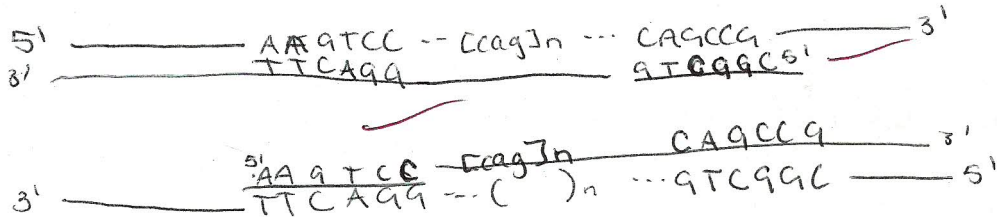 5' AAGTCC -- [cag]n --- CAGCCG 3'
3' TTCAGG GTCGGC 5'
5' AAGTCC [cag]n CAGCCG 3'
3' TTCAGG ---( )n ---GTCGGC 5'